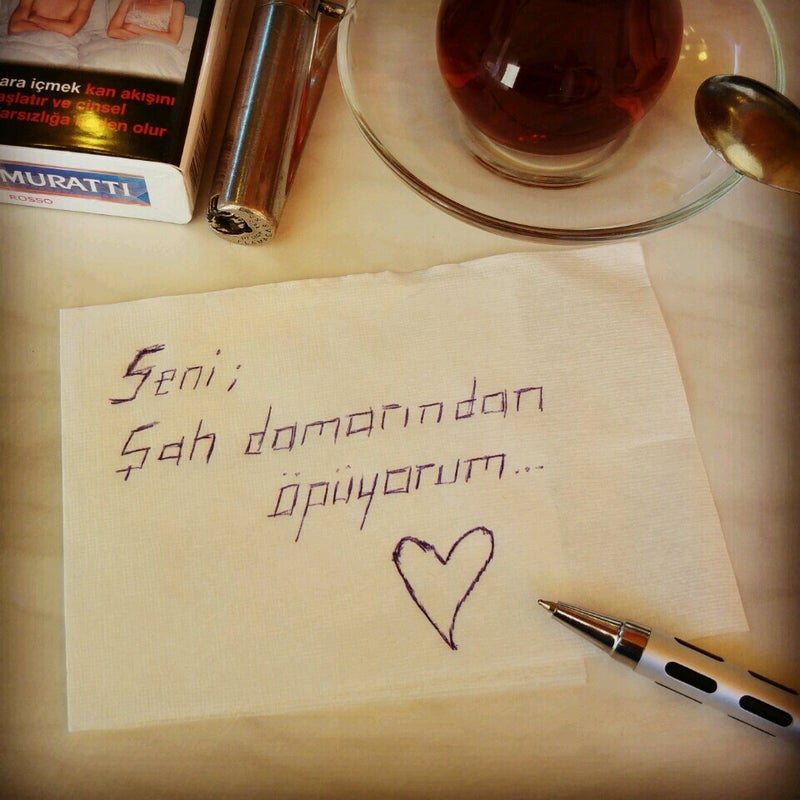 ara içmek kan akışını
aşlatır ve cinsel
arsızlığa neden olur
MURATTI
ROSSO
Seni;
Şah damarından
öpüyorum...